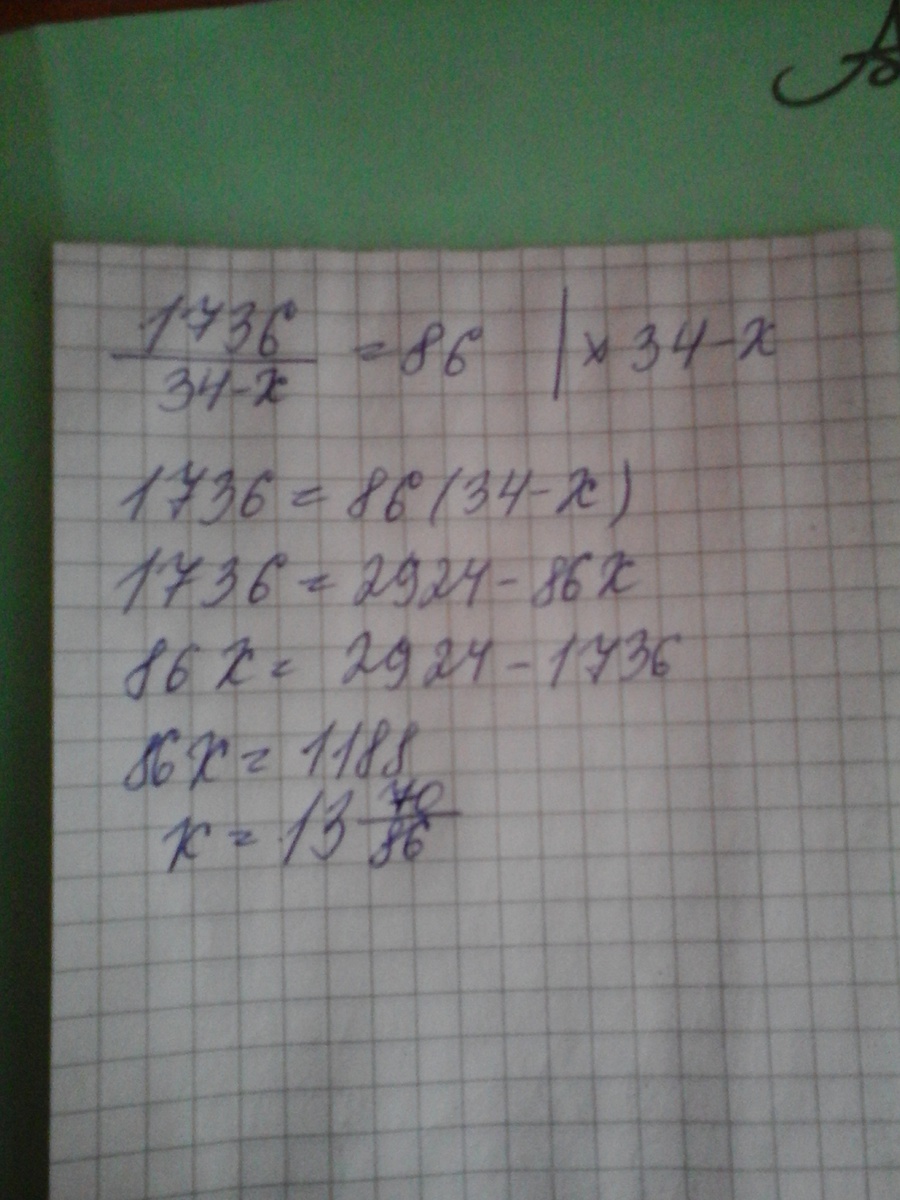 1736/34-x = 86 | × 34-x
1736 = 86(34-x)
1736 = 2924 - 86x
86x = 2924 - 1736
86x = 1188
x = 13 70/86